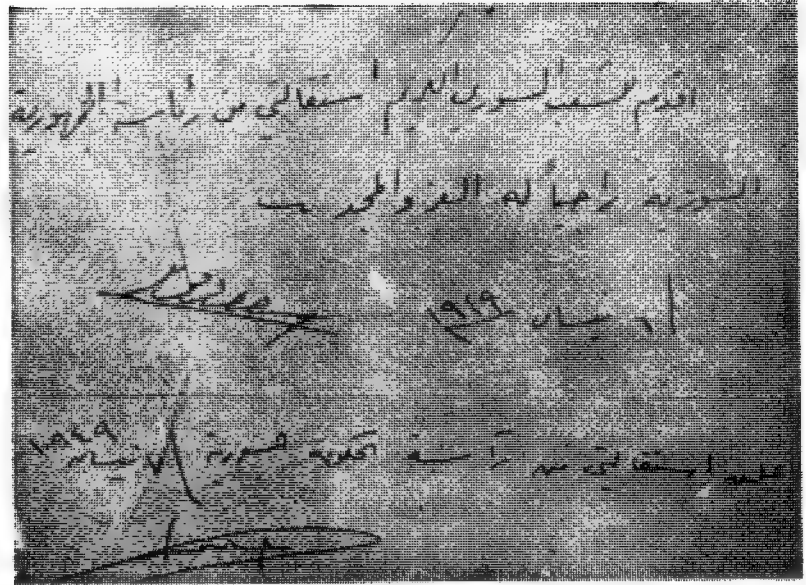 أقدم للشعب السوري الكريم استقالتي من رئاسة الجمهورية
السورية راجياً له العز والمجد
نيسان ١٩٤٩
استقالتي من رئاسة الحكومة السورية نيسان ١٩٤٩